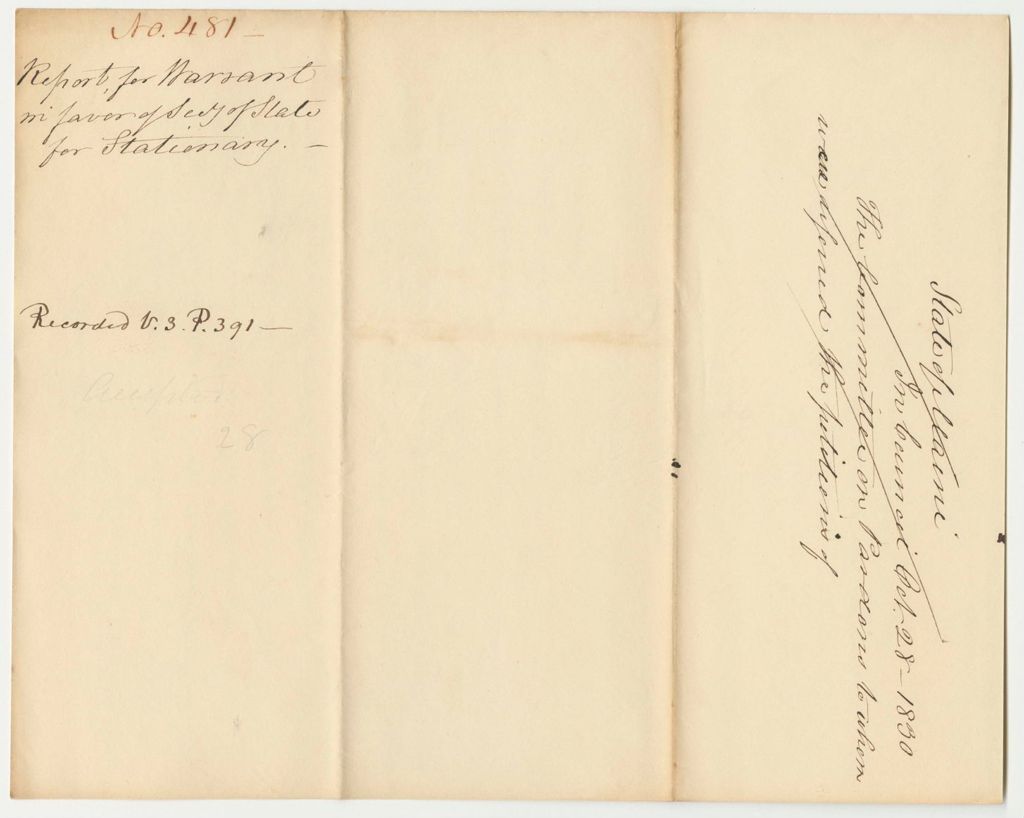 No. 481 —
Report, for Warrant
in favor of Secy of State
for Stationary. —
Recorded V. 3. P. 391 —
Accepted
28
State of Maine
In Council Oct. 28 - 1830
The Committee on Pardons to whom
was refered the petitions of